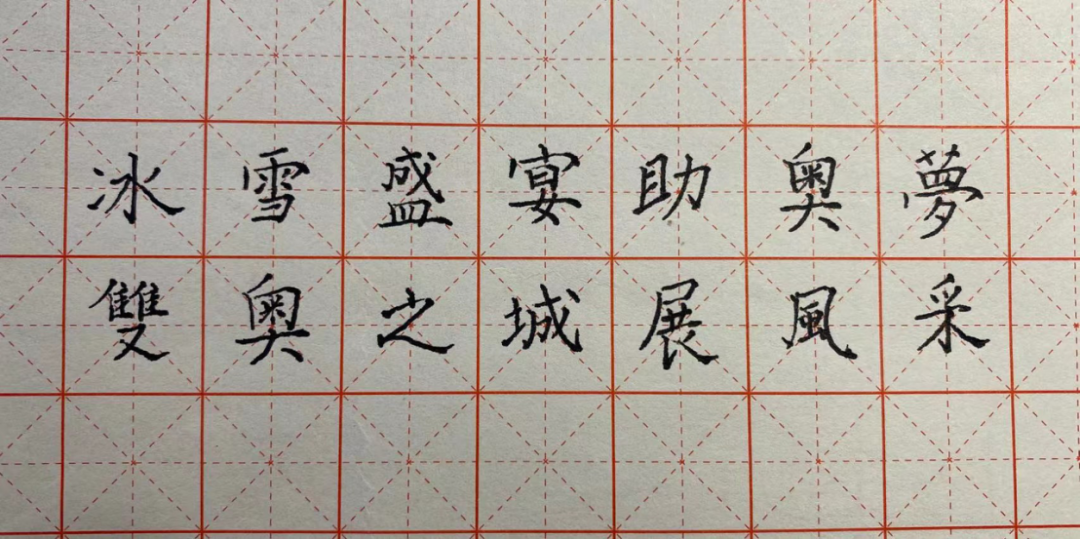 冰雪盛宴助奧夢
雙奧之城展風采